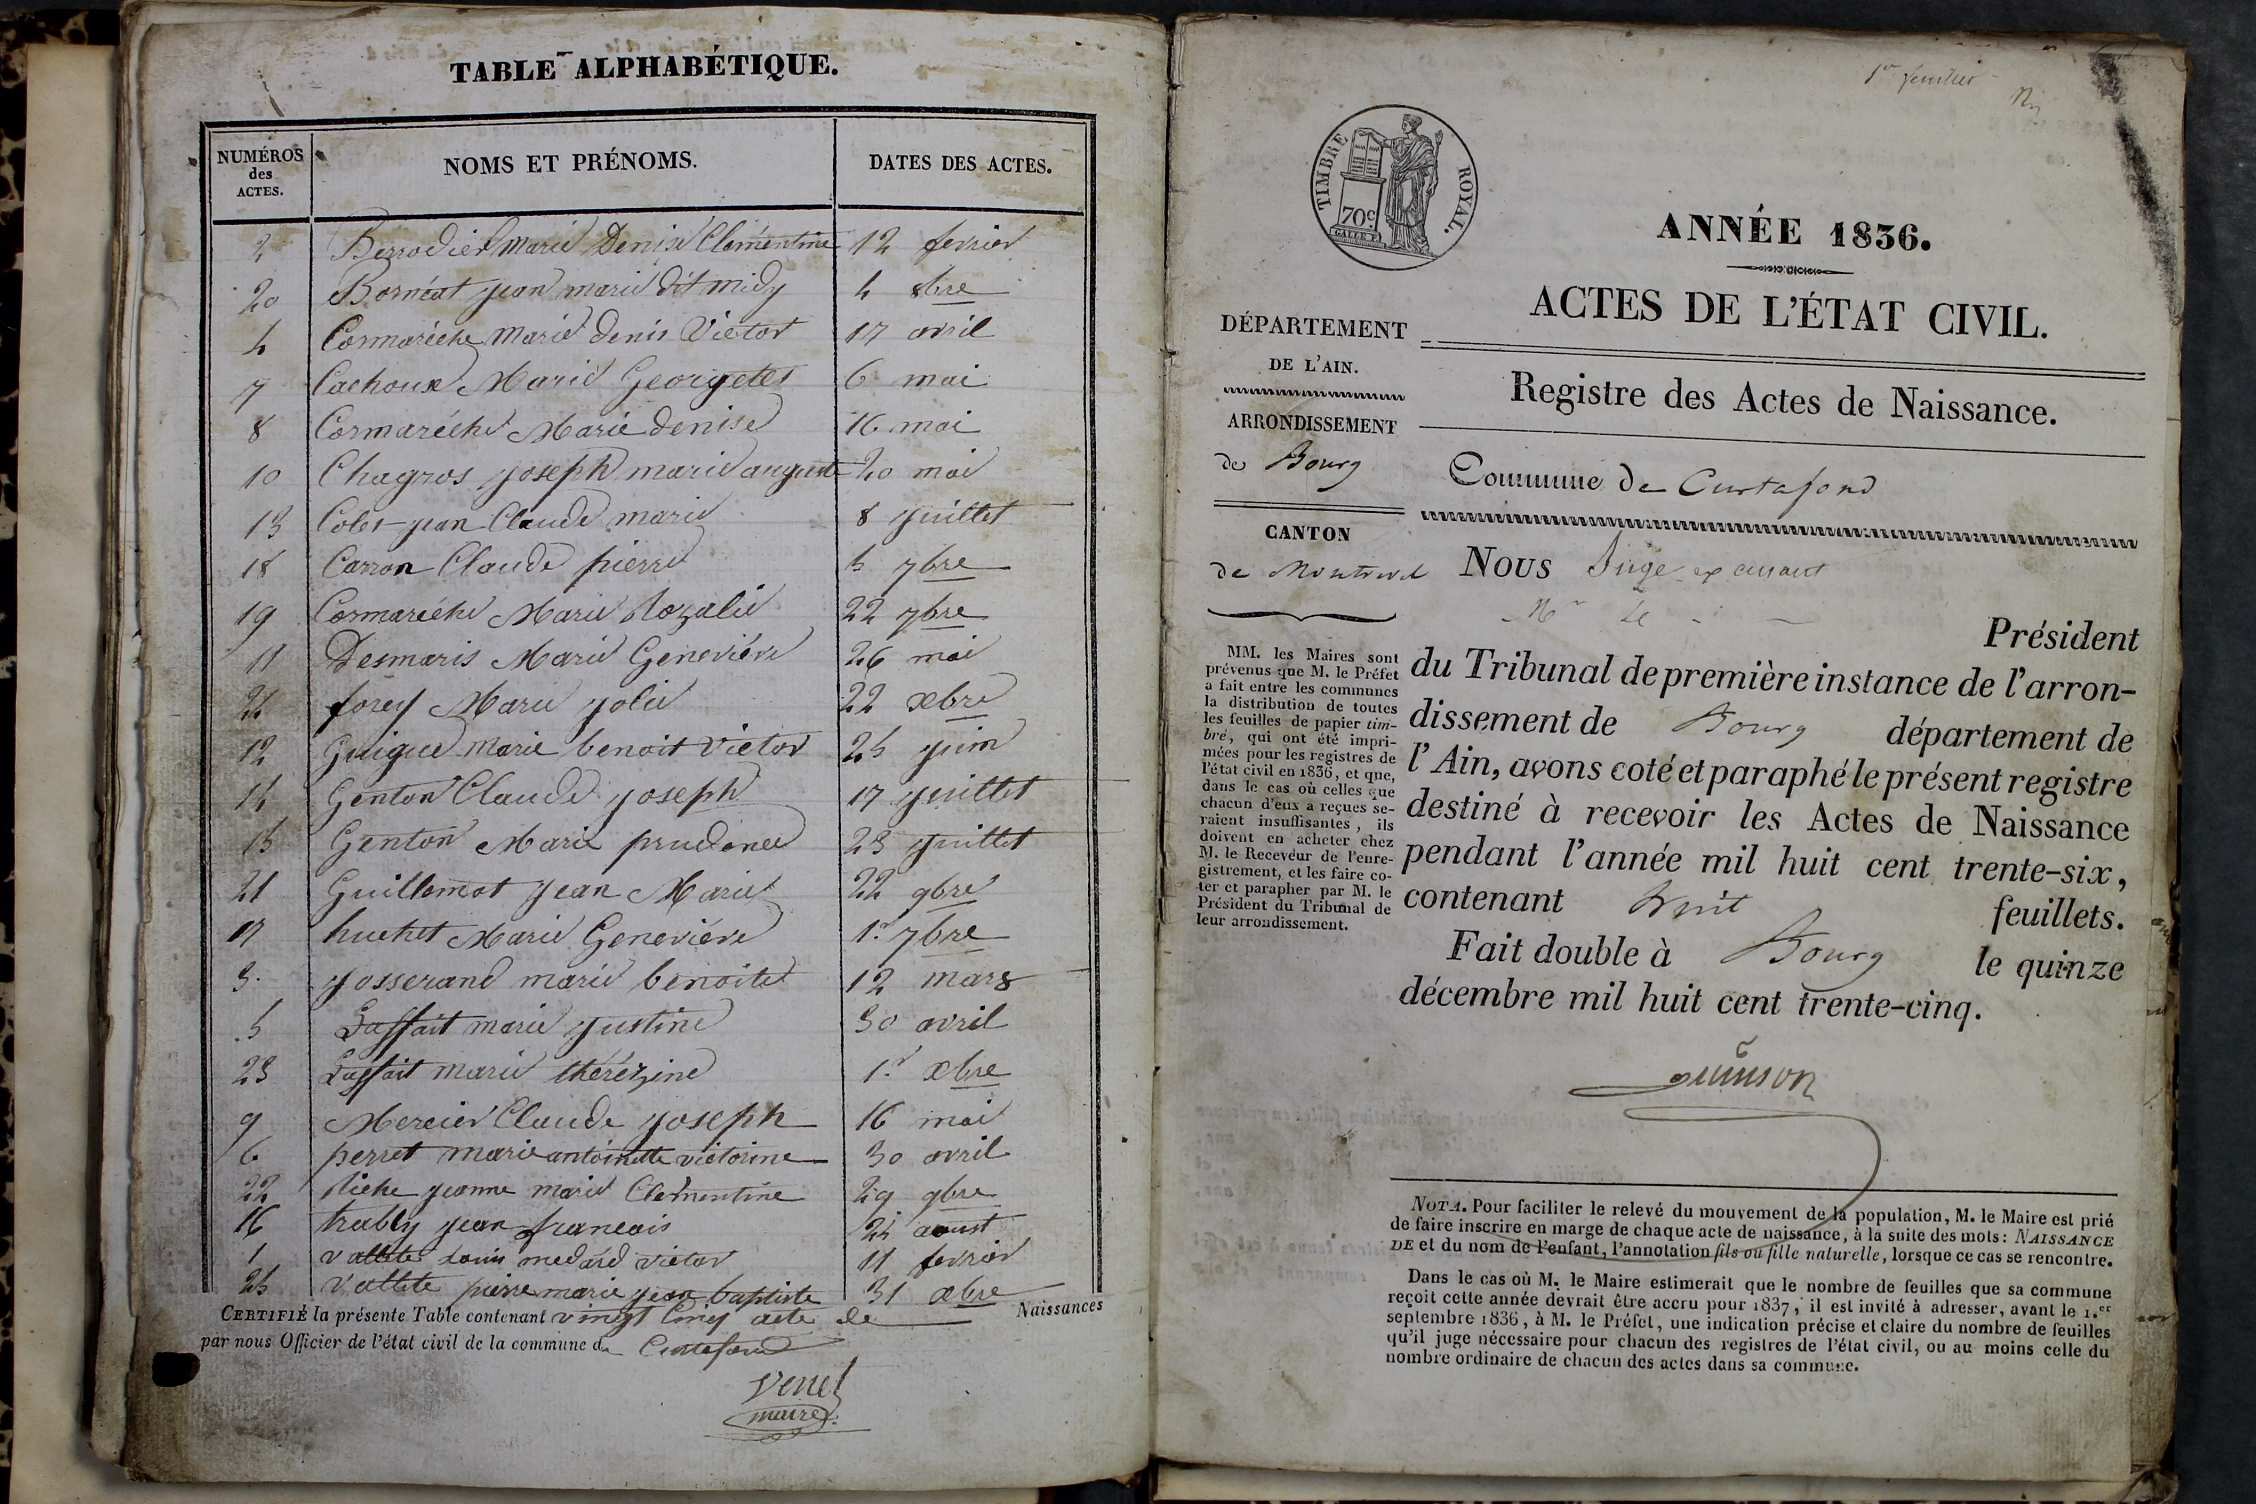 TABLE ALPHABÉTIQUE.
NUMÉROS des ACTES. NOMS ET PRÉNOMS. DATES DES ACTES.
2 Berrodier Marie Denise Clémentine 12 fevrier
20 Bornéat jean marie dit midy 4 8bre
4 Cormarèche Marie denis Victor 17 avril
7 Cachoux Marie Georgette 6 mai
8 Cormarèche Marie denise 16 mai
10 Chagros joseph marie auguste 20 mai
13 Colet jean Claude marie 8 juillet
18 Carron Claude pierre 5 7bre
19 Cormarèche Marie Rozalie 22 7bre
11 Desmaris Marie Geneviève 26 mai
24 forey Marie jolie 22 xbre
12 Guigue marie benoit Victor 25 juin
14 Genton Claude joseph 17 juillet
15 Genton Marie prudence 23 juillet
21 Guillemot jean Marie 22 9bre
17 huchet Marie Geneviève 1er 7bre
3 josserand marie benoite 12 mars
5 Laffait marie justine 30 avril
23 Laffait marie thérézine 1er xbre
9 Mercier Claude joseph 16 mai
6 perret marie antoinette victorine 30 avril
22 Riche jeanne marie Clementine 29 9bre
16 trably jean francois 24 aoust
1 vallete Louis medard victor 11 fevrier
25 Vallete pierre marie jean baptiste 31 xbre
CERTIFIÉ la présente Table contenant vingt Cinq acte de Naissances
par nous Officier de l'état civil de la commune de Curtafond
Venet
maire
1er feuillet
ANNÉE 1836.
TIMBRE ROYAL.
70c
ACTES DE L'ÉTAT CIVIL.
DÉPARTEMENT
DE L'AIN.
ARRONDISSEMENT
de Bourg
CANTON
de Montrevel
MM. les Maires sont
prévenus que M. le Préfet
a fait entre les communes
la distribution de toutes
les feuilles de papier tim-
bré, qui ont été impri-
mées pour les registres de
l'état civil en 1836, et que,
dans le cas où celles que
chacun d'eux a reçues se-
raient insuffisantes, ils
doivent en acheter chez
M. le Receveur de l'enre-
gistrement, et les faire co-
ter et parapher par M. le
Président du Tribunal de
leur arrondissement.
Registre des Actes de Naissance.
Commune de Curtafond
Nous Juge
Mr le
Président
du Tribunal de première instance de l'arron-
dissement de Bourg département de
l'Ain, avons coté et paraphé le présent registre
destiné à recevoir les Actes de Naissance
pendant l'année mil huit cent trente-six,
contenant huit feuillets.
Fait double à Bourg le quinze
décembre mil huit cent trente-cinq.
NOTA. Pour faciliter le relevé du mouvement de la population, M. le Maire est prié
de faire inscrire en marge de chaque acte de naissance, à la suite des mots: NAISSANCE
DE et du nom de l'enfant, l'annotation fils ou fille naturelle, lorsque ce cas se rencontre.
Dans le cas où M. le Maire estimerait que le nombre de feuilles que sa commune
reçoit cette année devrait être accru pour 1837, il est invité à adresser, avant le 1.er
septembre 1836, à M. le Préfet, une indication précise et claire du nombre de feuilles
qu'il juge nécessaire pour chacun des registres de l'état civil, ou au moins celle du
nombre ordinaire de chacun des actes dans sa commune.